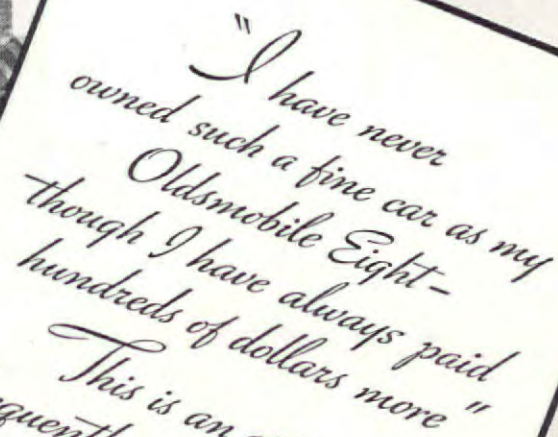 "I have never
owned such a fine car as my
Oldsmobile Eight-
though I have always paid
hundreds of dollars more"
This is an